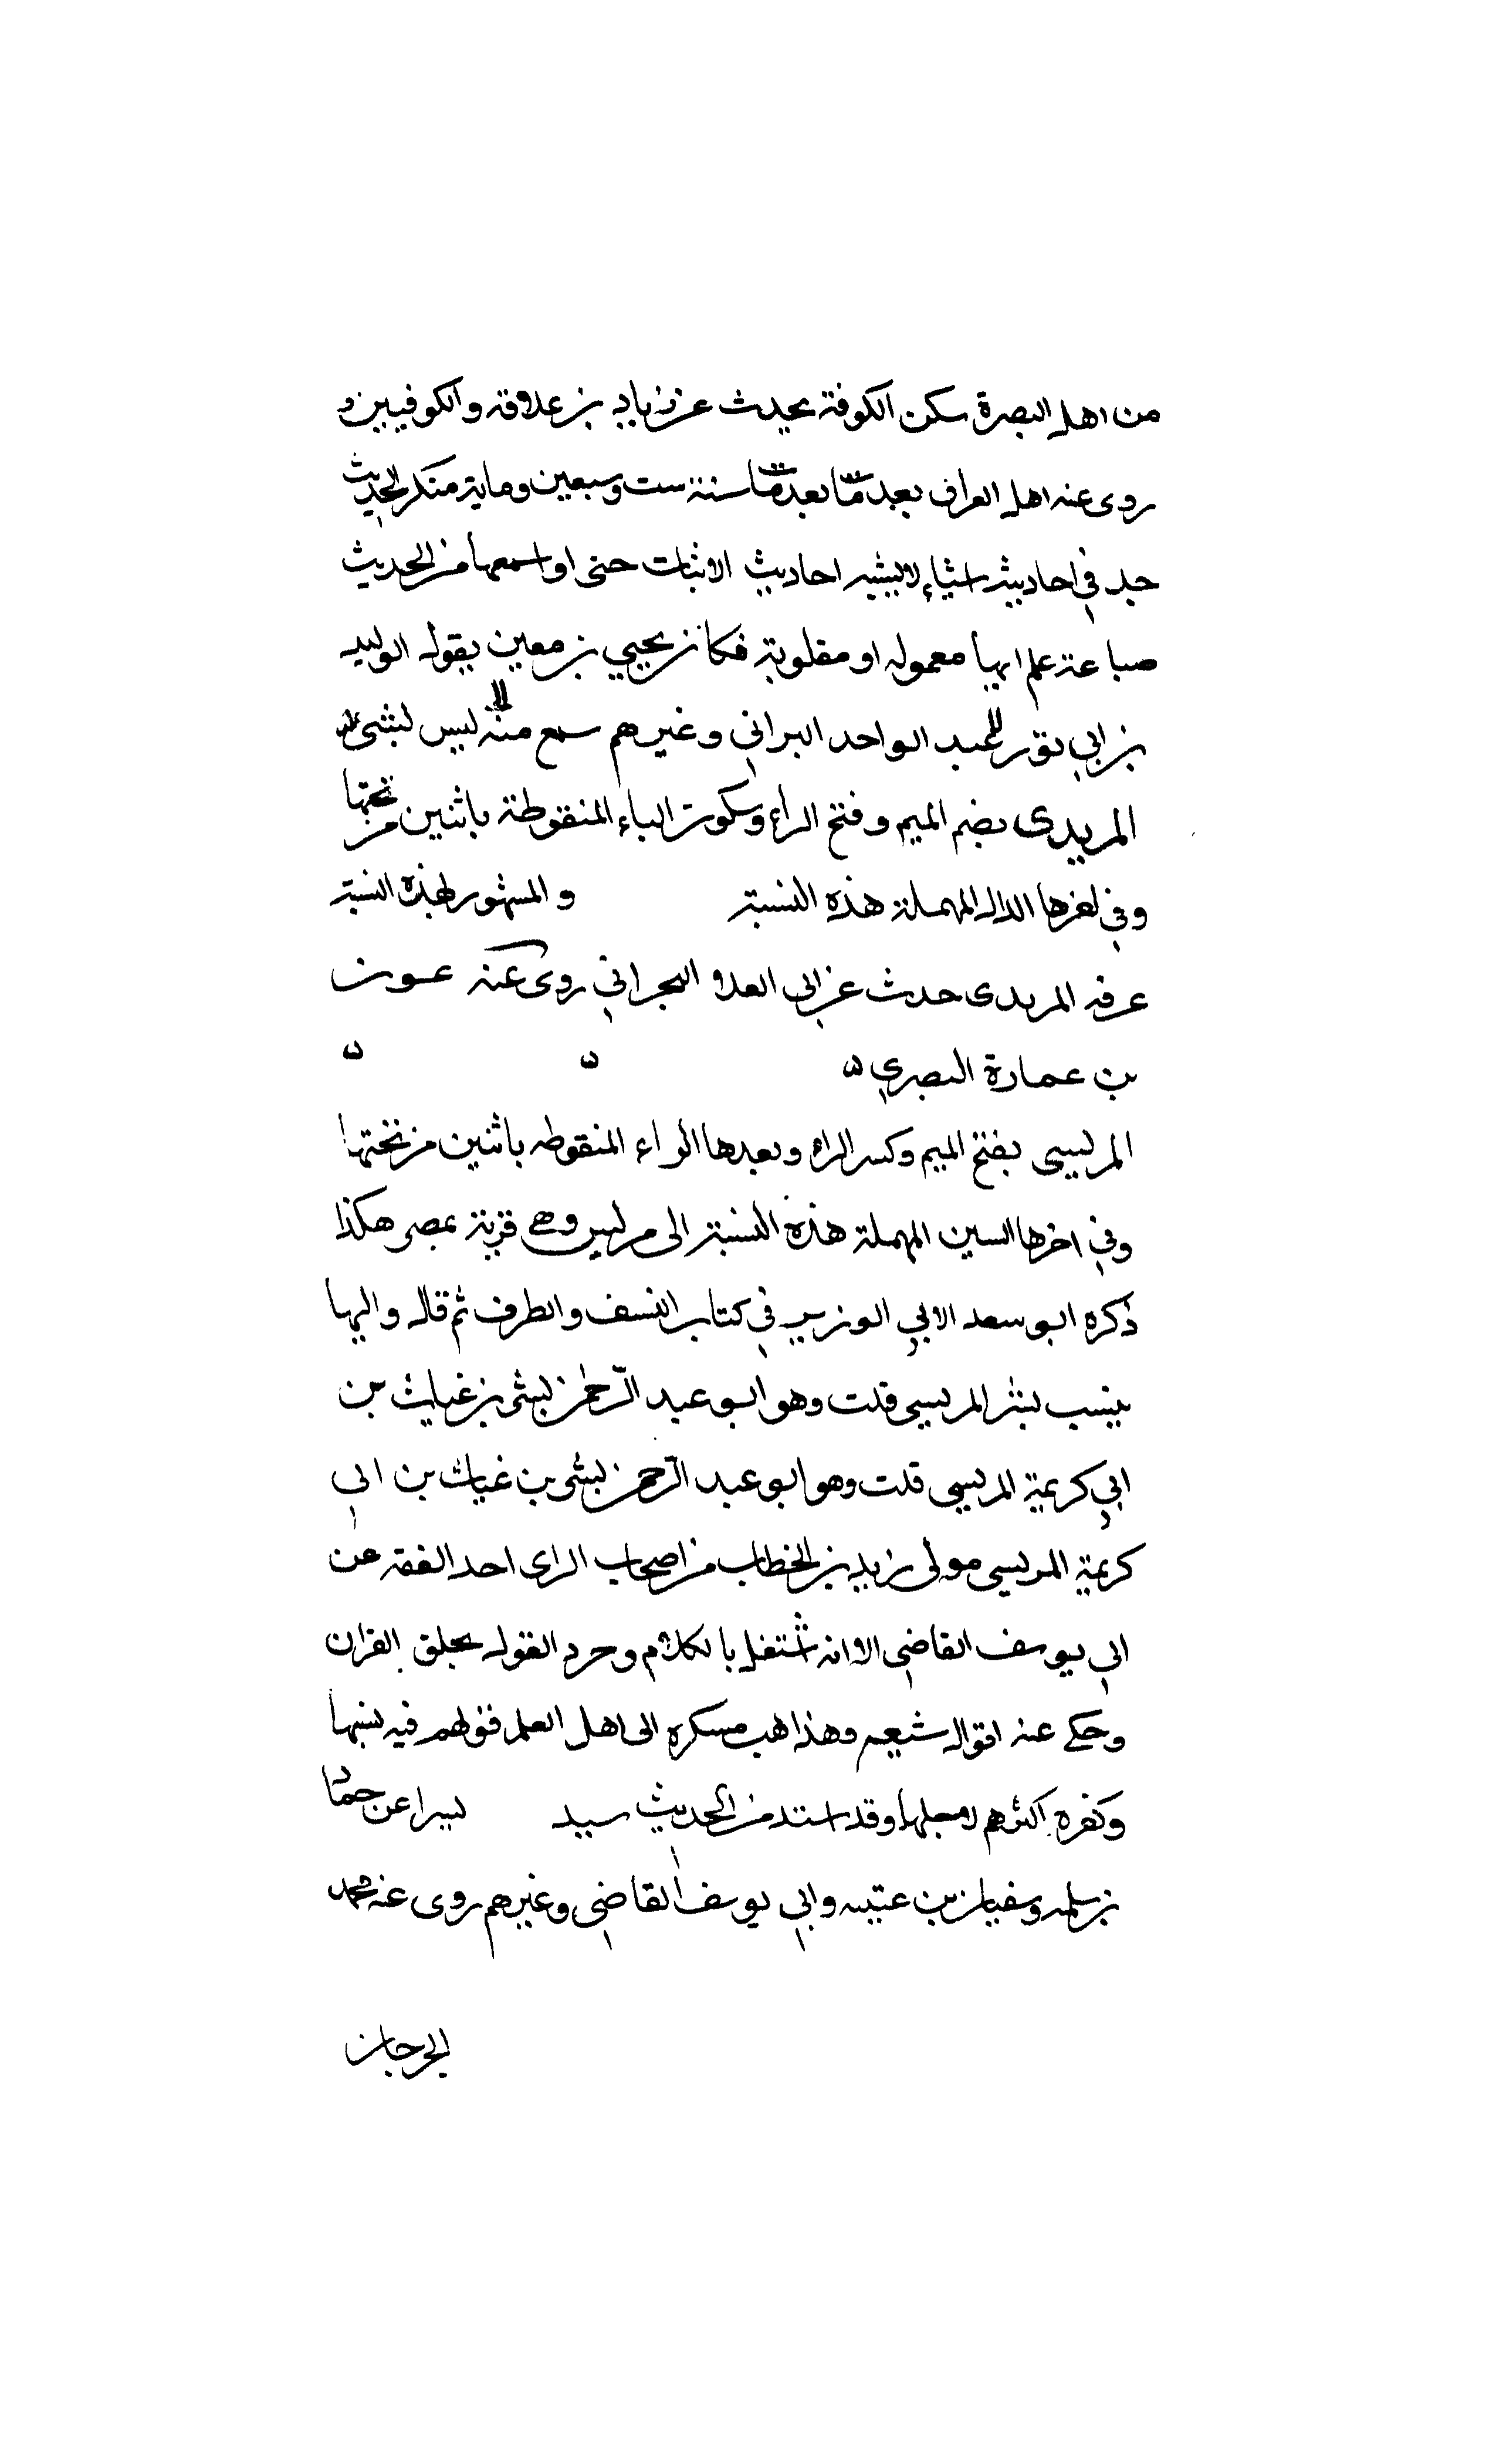 من اهل البصرة سكن الكوفة يحدث عن زياد بن علاقه والكوفيين و
روى عنه اهل العراق بعد مات بعد مات سنة ست وسبعين وماية منكر الحديث
جد في احاديثه اشياء لا يشبه احاديث الاثبات حتى اذا سمعها من الحديث
صباعة علم انها معموله او مقلوبة فكان يحيي بن معين يقول الوليد
بن ابي ثور لعبد الواحد البراني وغيرهم سمع منه ليس بشئ
المريدى بضم الميم وفتح الراء وسكون الياء المنقوطة باثنين من تحتها
وفي اخرها الدال المهملة هذه النسبة والمشهور بهذه النسبة
عرفه المريدى حدث عن ابي العلا البحراني روى عنه عون
بن عمارة البصري ه ه ه
المريسي بفتح الميم وكسر الراء وبعدها الواء المنقوطه باثنين من تحتها
وفي اخرها السين المهملة هذه النسبة الى مريس وهى قرية بمصر هكذا
ذكره ابو سعد الابي الوزير في كتاب النسف والطرف ثم قال واليها
ينسب بشر المريسي قلت وهو ابو عبد الرحمن بشر بن غياث بن
ابي كريمة المريسي قلت وهو ابو عبد الرحمن بشر بن غياث بن ابى
كريمة المريسي مولى زيد بن الخطاب من اصحاب الراى احد الفقه عن
ابي يوسف القاضي الا انه شتغل بالكلام وجرد القول بخلق القران
وحكى عنه اقوال شنيعه وهذاهب مسكره الى اهل العلم قولهم فيه بسبها
وكفره اكثرهم لاجلها وقد اسند من الحديث سيد يسيرا عن حماد
بن سلمه وسفيان بن عتيبه وابي يوسف القاضي وغيرهم روى عنه محمد
الجرجان